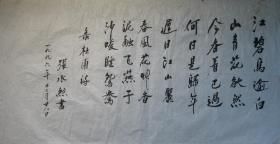 江碧鳥逾白
山青花欲然
今春看已過
何日是歸年
遲日江山麗
春風花草香
泥融飛燕子
沙暖睡鴛鴦
录杜甫詩
張水然書
一九九六年